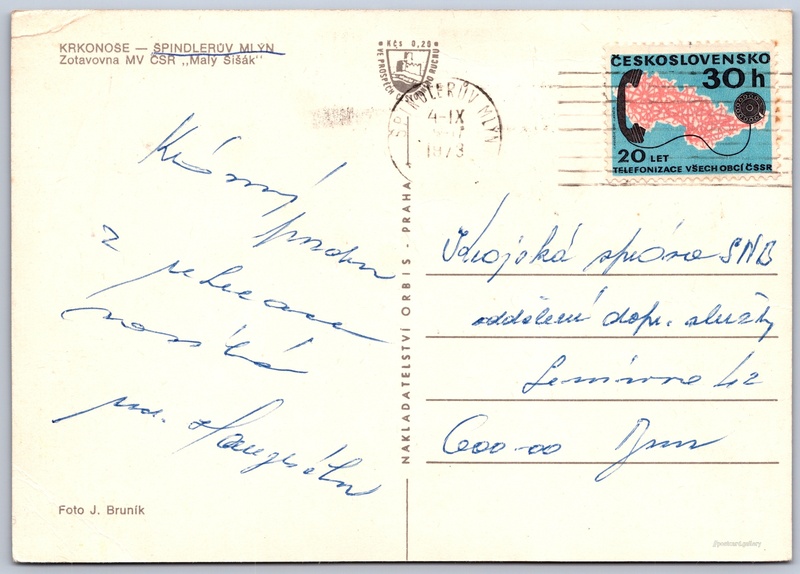 KRKONOŠE — ŠPINDLERŮV MLÝN
Zotavovna MV ČSR „Malý Šišák"
Kčs 0,20
VE PROSPĚCH
RUCHU
ŠPINDLERŮV MLÝN
4-IX
1973
ČESKOSLOVENSKO
30h
20 LET
TELEFONIZACE VŠECH OBCÍ ČSSR
Krásný
pozdrav
z rekreace
zasílá
NAKLADATELSTVÍ ORBIS - PRAHA
Krajská správa SNB
oddělení dopr. služby
Lenínova 42
600-00 Brno
Foto J. Bruník